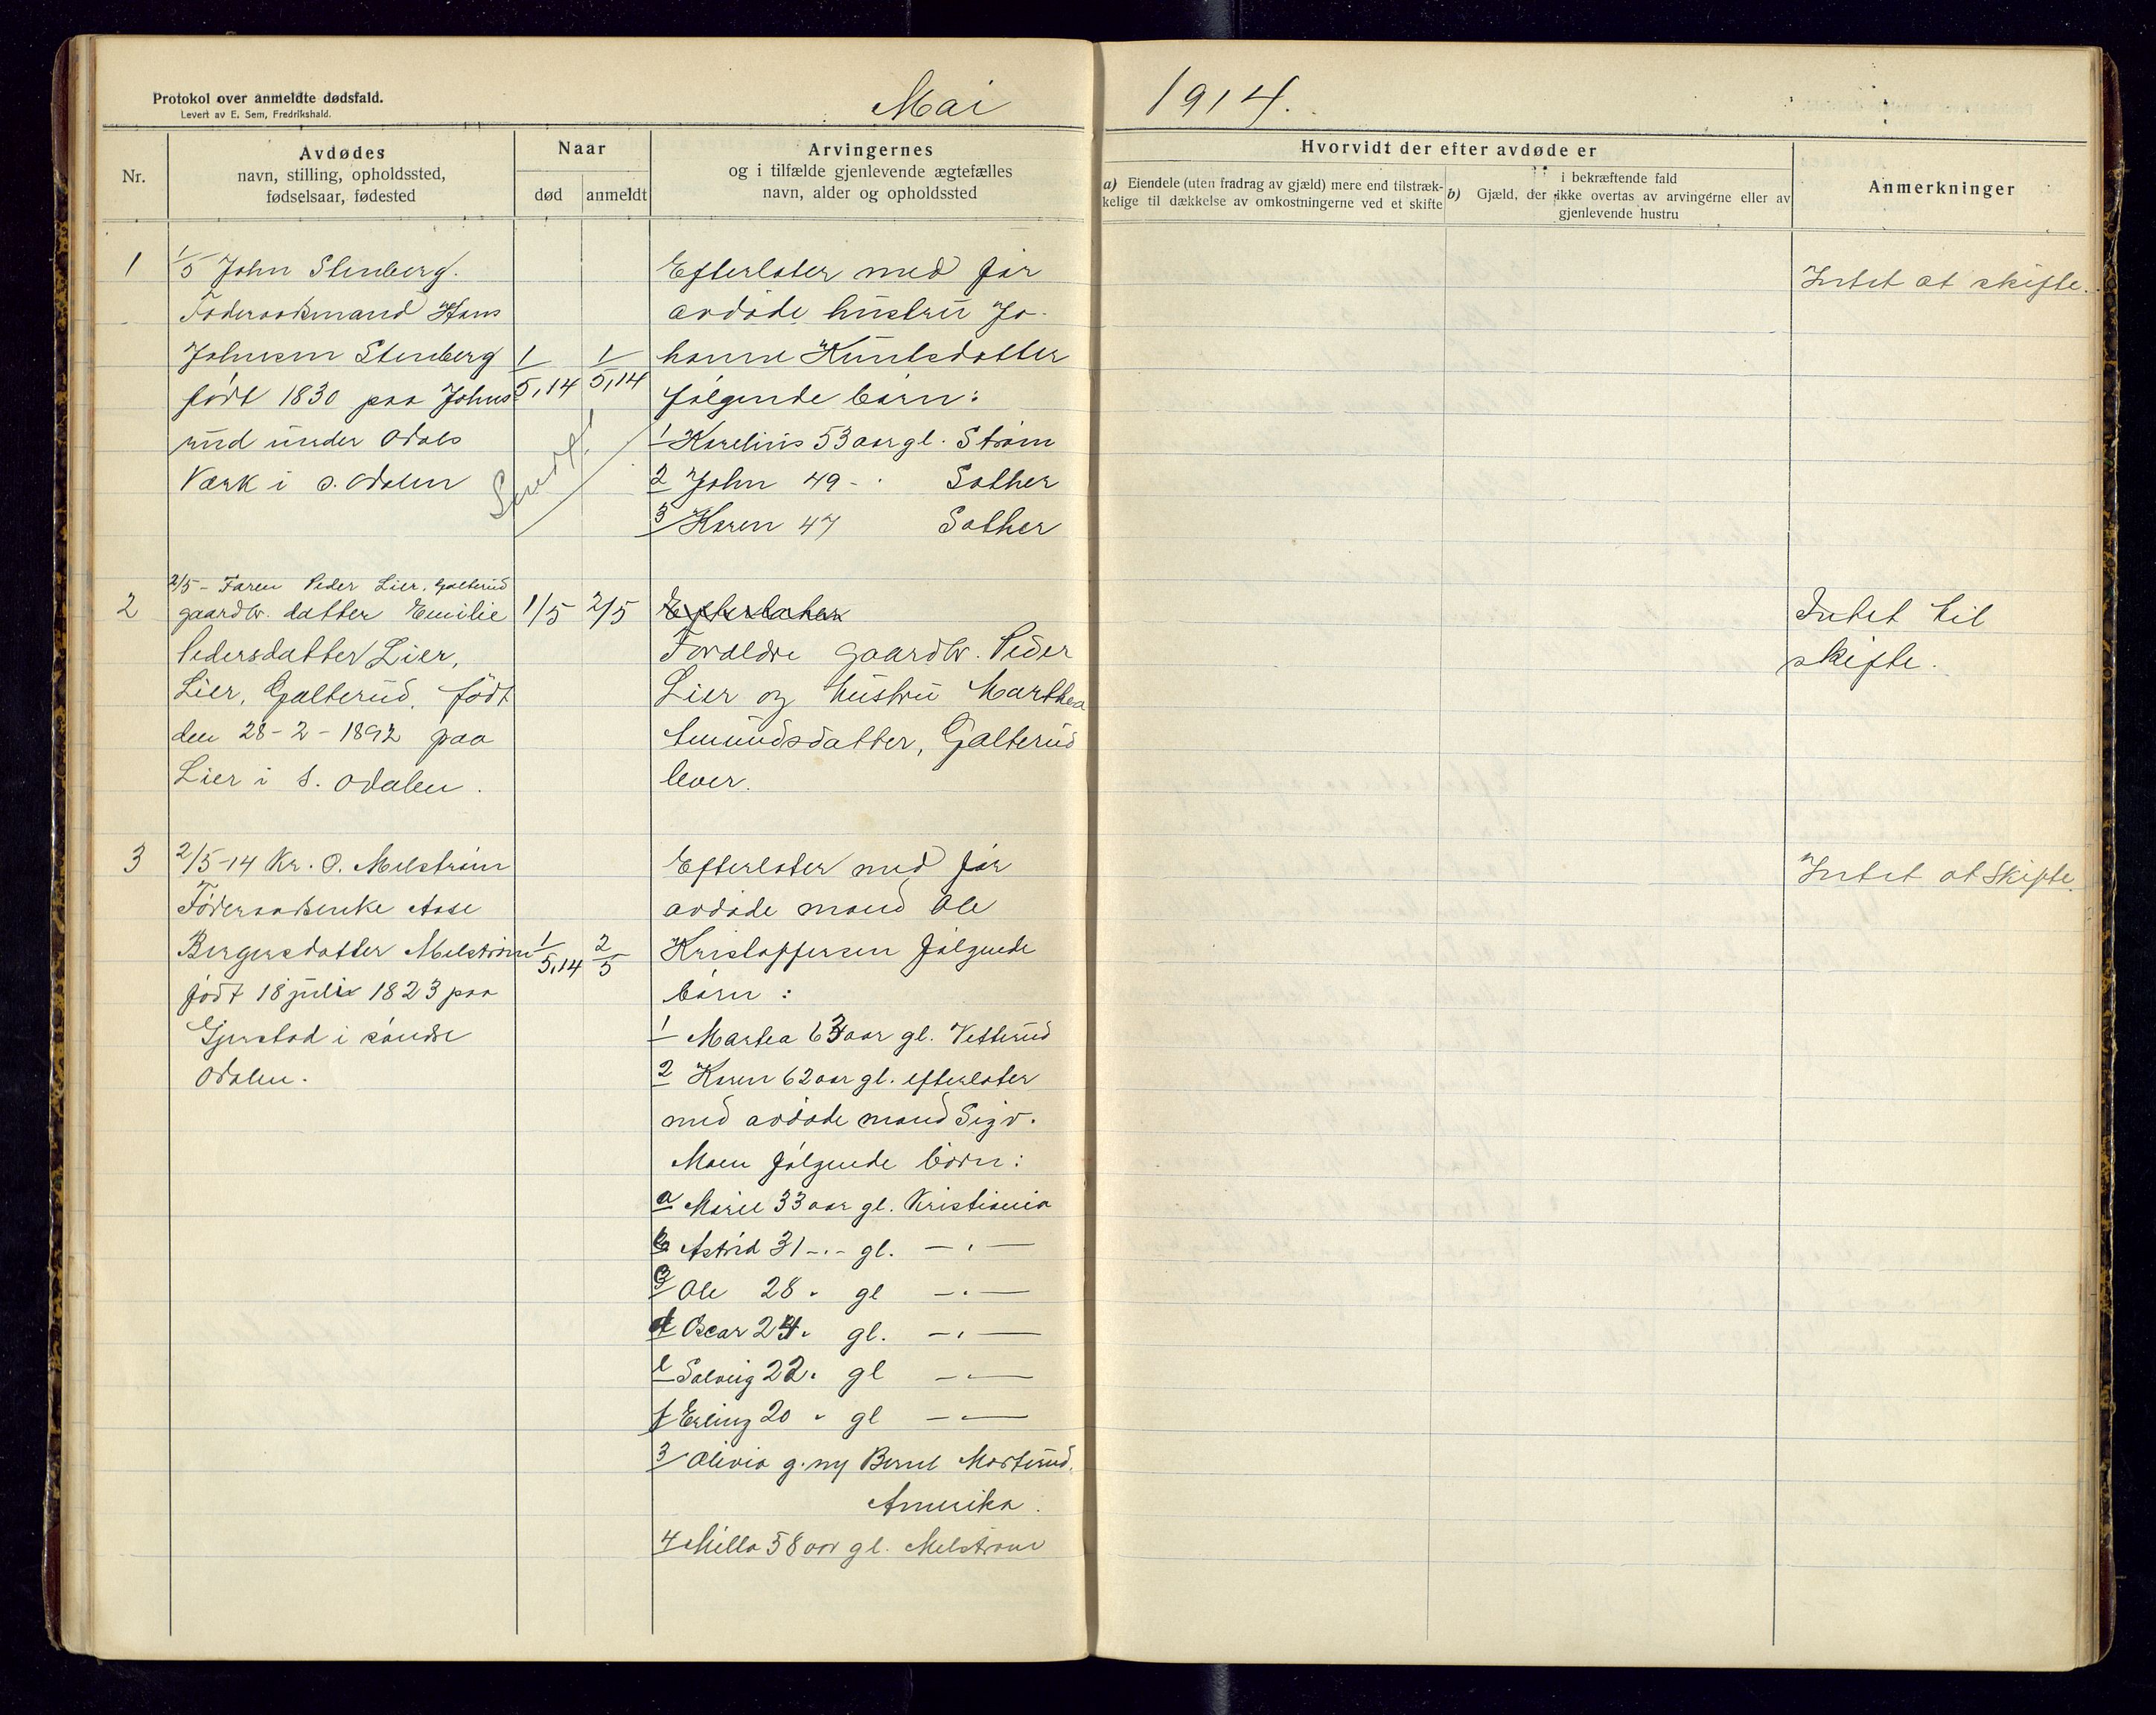 Protokol over anmeldte dødsfald.
Levert av E. Sem, Fredrikshald.
Mai
1914.
Nr.
Avdødes
navn, stilling, opholdssted,
fødselsaar, fødested
Naar
død
anmeldt
Arvingernes
og i tilfælde gjenlevende ægtefælles
navn, alder og opholdssted
Hvorvidt der efter avdøde er
a) Eiendele (uten fradrag av gjæld) mere end tilstræk-
kelige til dækkelse av omkostningerne ved et skifte
i bekræftende fald
b) Gjæld, der ikke overtas av arvingerne eller av
gjenlevende hustru
Anmerkninger
1
1/5 John Stenberg.
Føderaadsmand Hans
Johnsen Stenberg
født 1830 paa Johns
rud under Odals
Værk i s. Odalen
1/5,14
1/5,14
Efterlater med før
avdøde hustru Jo-
hanne Kuntsdatter
følgende børn:
1 Karelius 53 aar gl. Strøm
2 John 49 - Sother
3 Karen 47 Sother
Intet at skifte.
2
2/5 - Faren Peder Lier, Galterud
gaardbr. datter Emilie
Pedersdatter Lier,
Lier, Galterud, født
den 28-2-1892 paa
Lier i S. Odalen.
1/5
2/5
Efterlater
Forældre gaardbr. Peder
Lier og hustru Marthea
Amundsdatter, Galterud
lever.
Intet til
skifte.
3
2/5-14 Kr. O. Melstrøm
Føderaadsenke Aase
Bergersdatter Melstrøm
født 18 juli 1823 paa
Gjerstad i søndre
Odalen.
1/5,14
2/5
Efterlater med før
avdøde mand Ole
Kristoffersen følgende
børn:
1 Martea 63 aar gl. Vetterud
2 Karen 62 aar gl. efterlater
med avdøde mand Sigv.
Moen følgende børn:
a Marie 33 aar gl. Kristiania
b Astrid 31 -.- gl. - . -
c Ole 28 " gl - . -
d Oscar 24 " gl. - . -
e Solveig 22 " gl - . -
f Erling 20 " gl - . -
3 Olivia g. m Bernt Morterud.
Amerika.
4 Milla 58 aar gl. Melstrøm
Intet at Skifte.